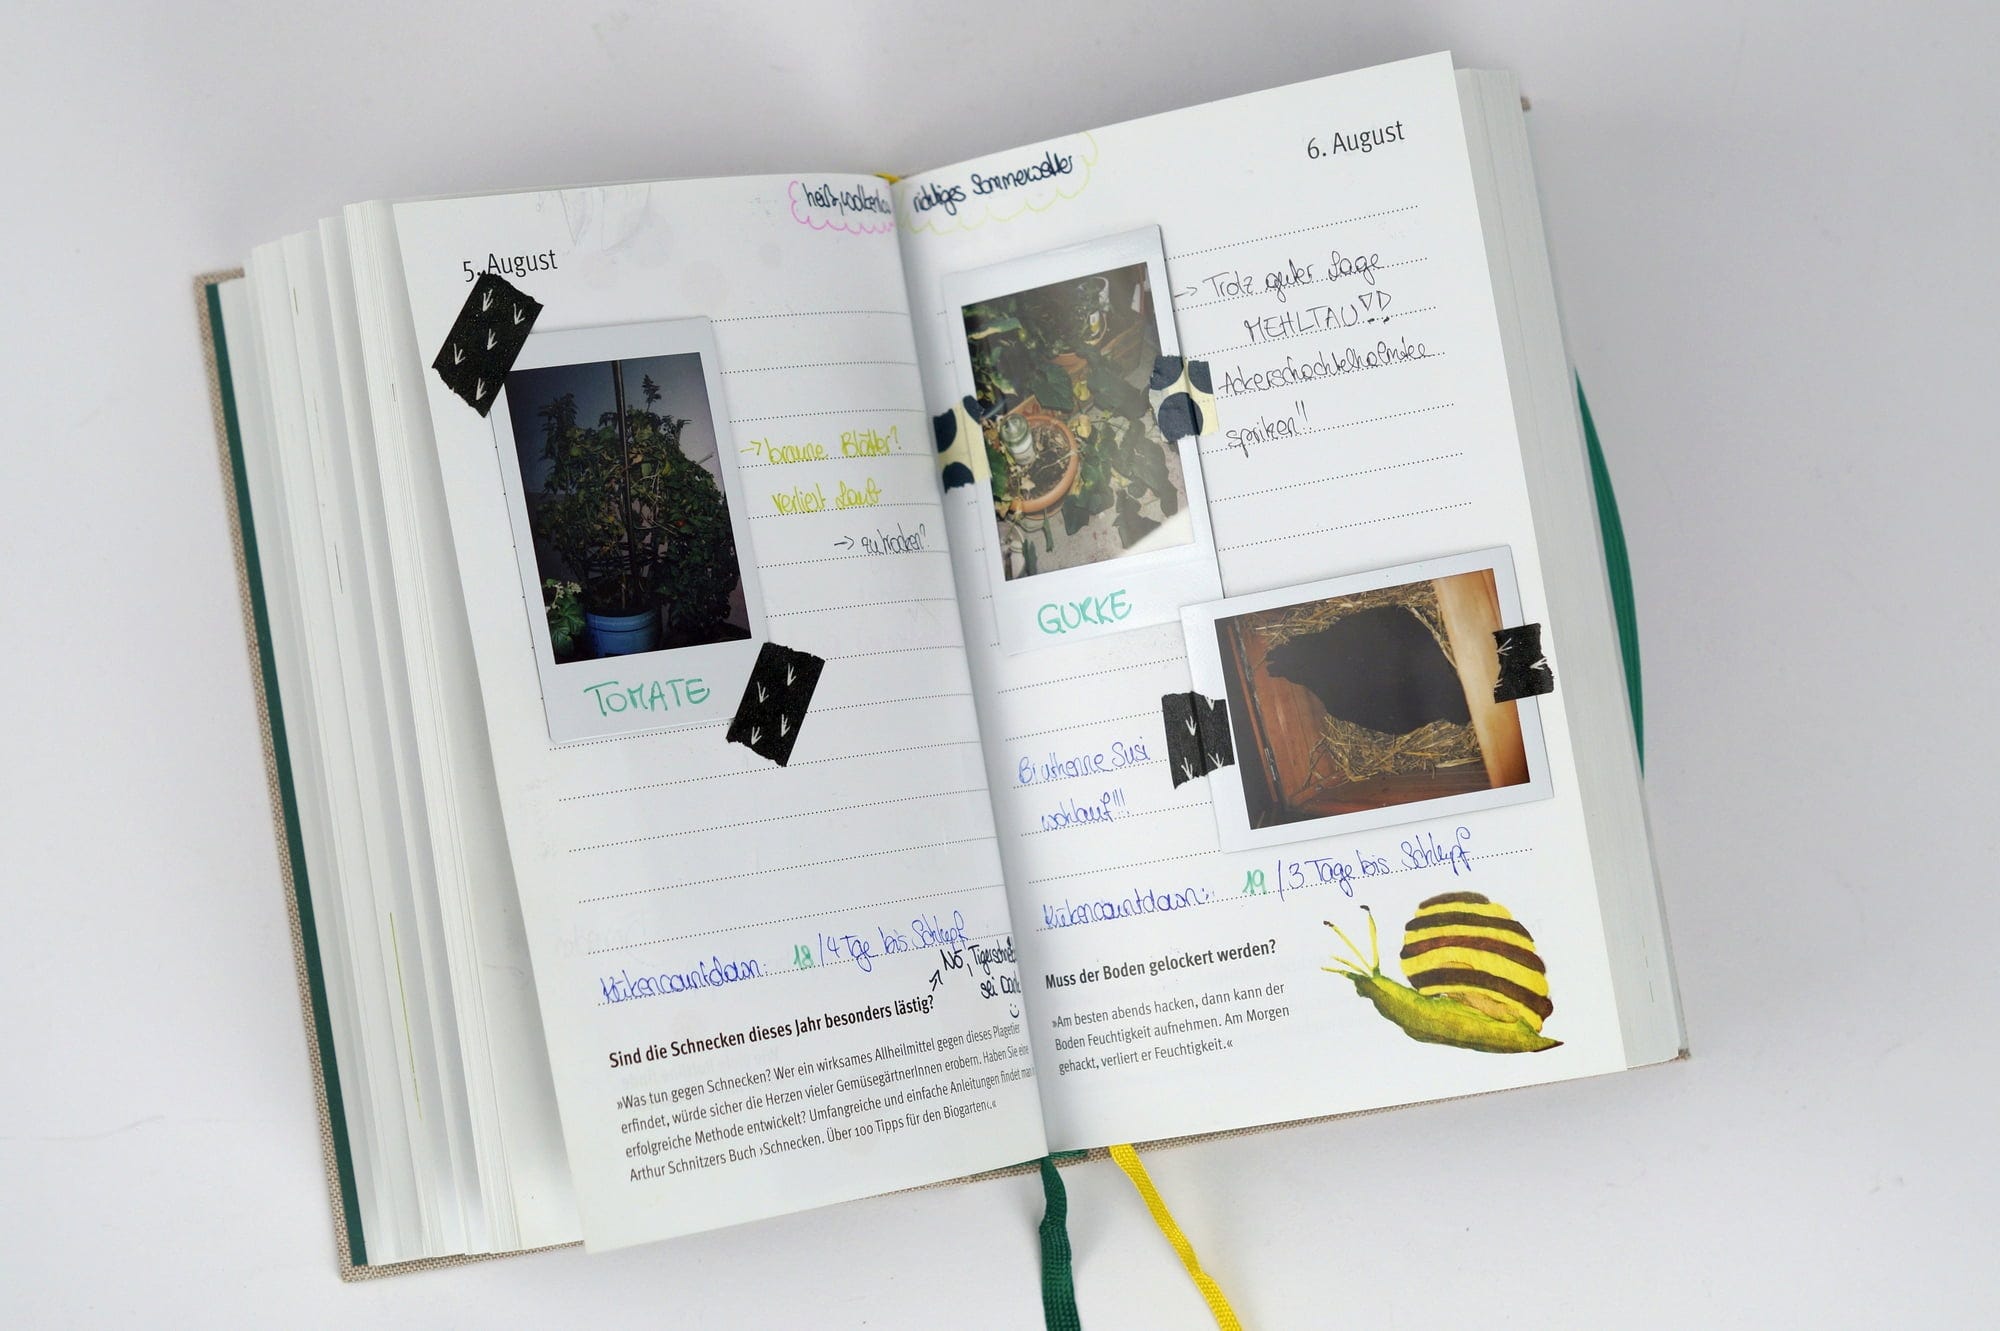 heiß, wolkenlos
5. August
→ braune Blätter?
verliert Laub
→ zu trocken?
TOMATE
Kükencountdown: 18 / 4 Tge bis Schlupf
Nö, Tigerschnegel
sei Dank
Sind die Schnecken dieses Jahr besonders lästig?
»Was tun gegen Schnecken? Wer ein wirksames Allheilmittel gegen dieses Plagetier
erfindet, würde sicher die Herzen vieler GemüsegärtnerInnen erobern. Haben Sie eine
erfolgreiche Methode entwickelt? Umfangreiche und einfache Anleitungen findet man
Arthur Schnitzers Buch ›Schnecken. Über 100 Tipps für den Biogarten‹.«
richtiges Sommerwetter
6. August
→ Trotz guter Lage
MEHLTAU!!
Ackerschachtelhalmtee
spritzen!!
GURKE
Bruthenne Susi
wohlauf!!!
Kükencountdown: 19 / 3 Tage bis Schlupf
Muss der Boden gelockert werden?
»Am besten abends hacken, dann kann der
Boden Feuchtigkeit aufnehmen. Am Morgen
gehackt, verliert er Feuchtigkeit.«